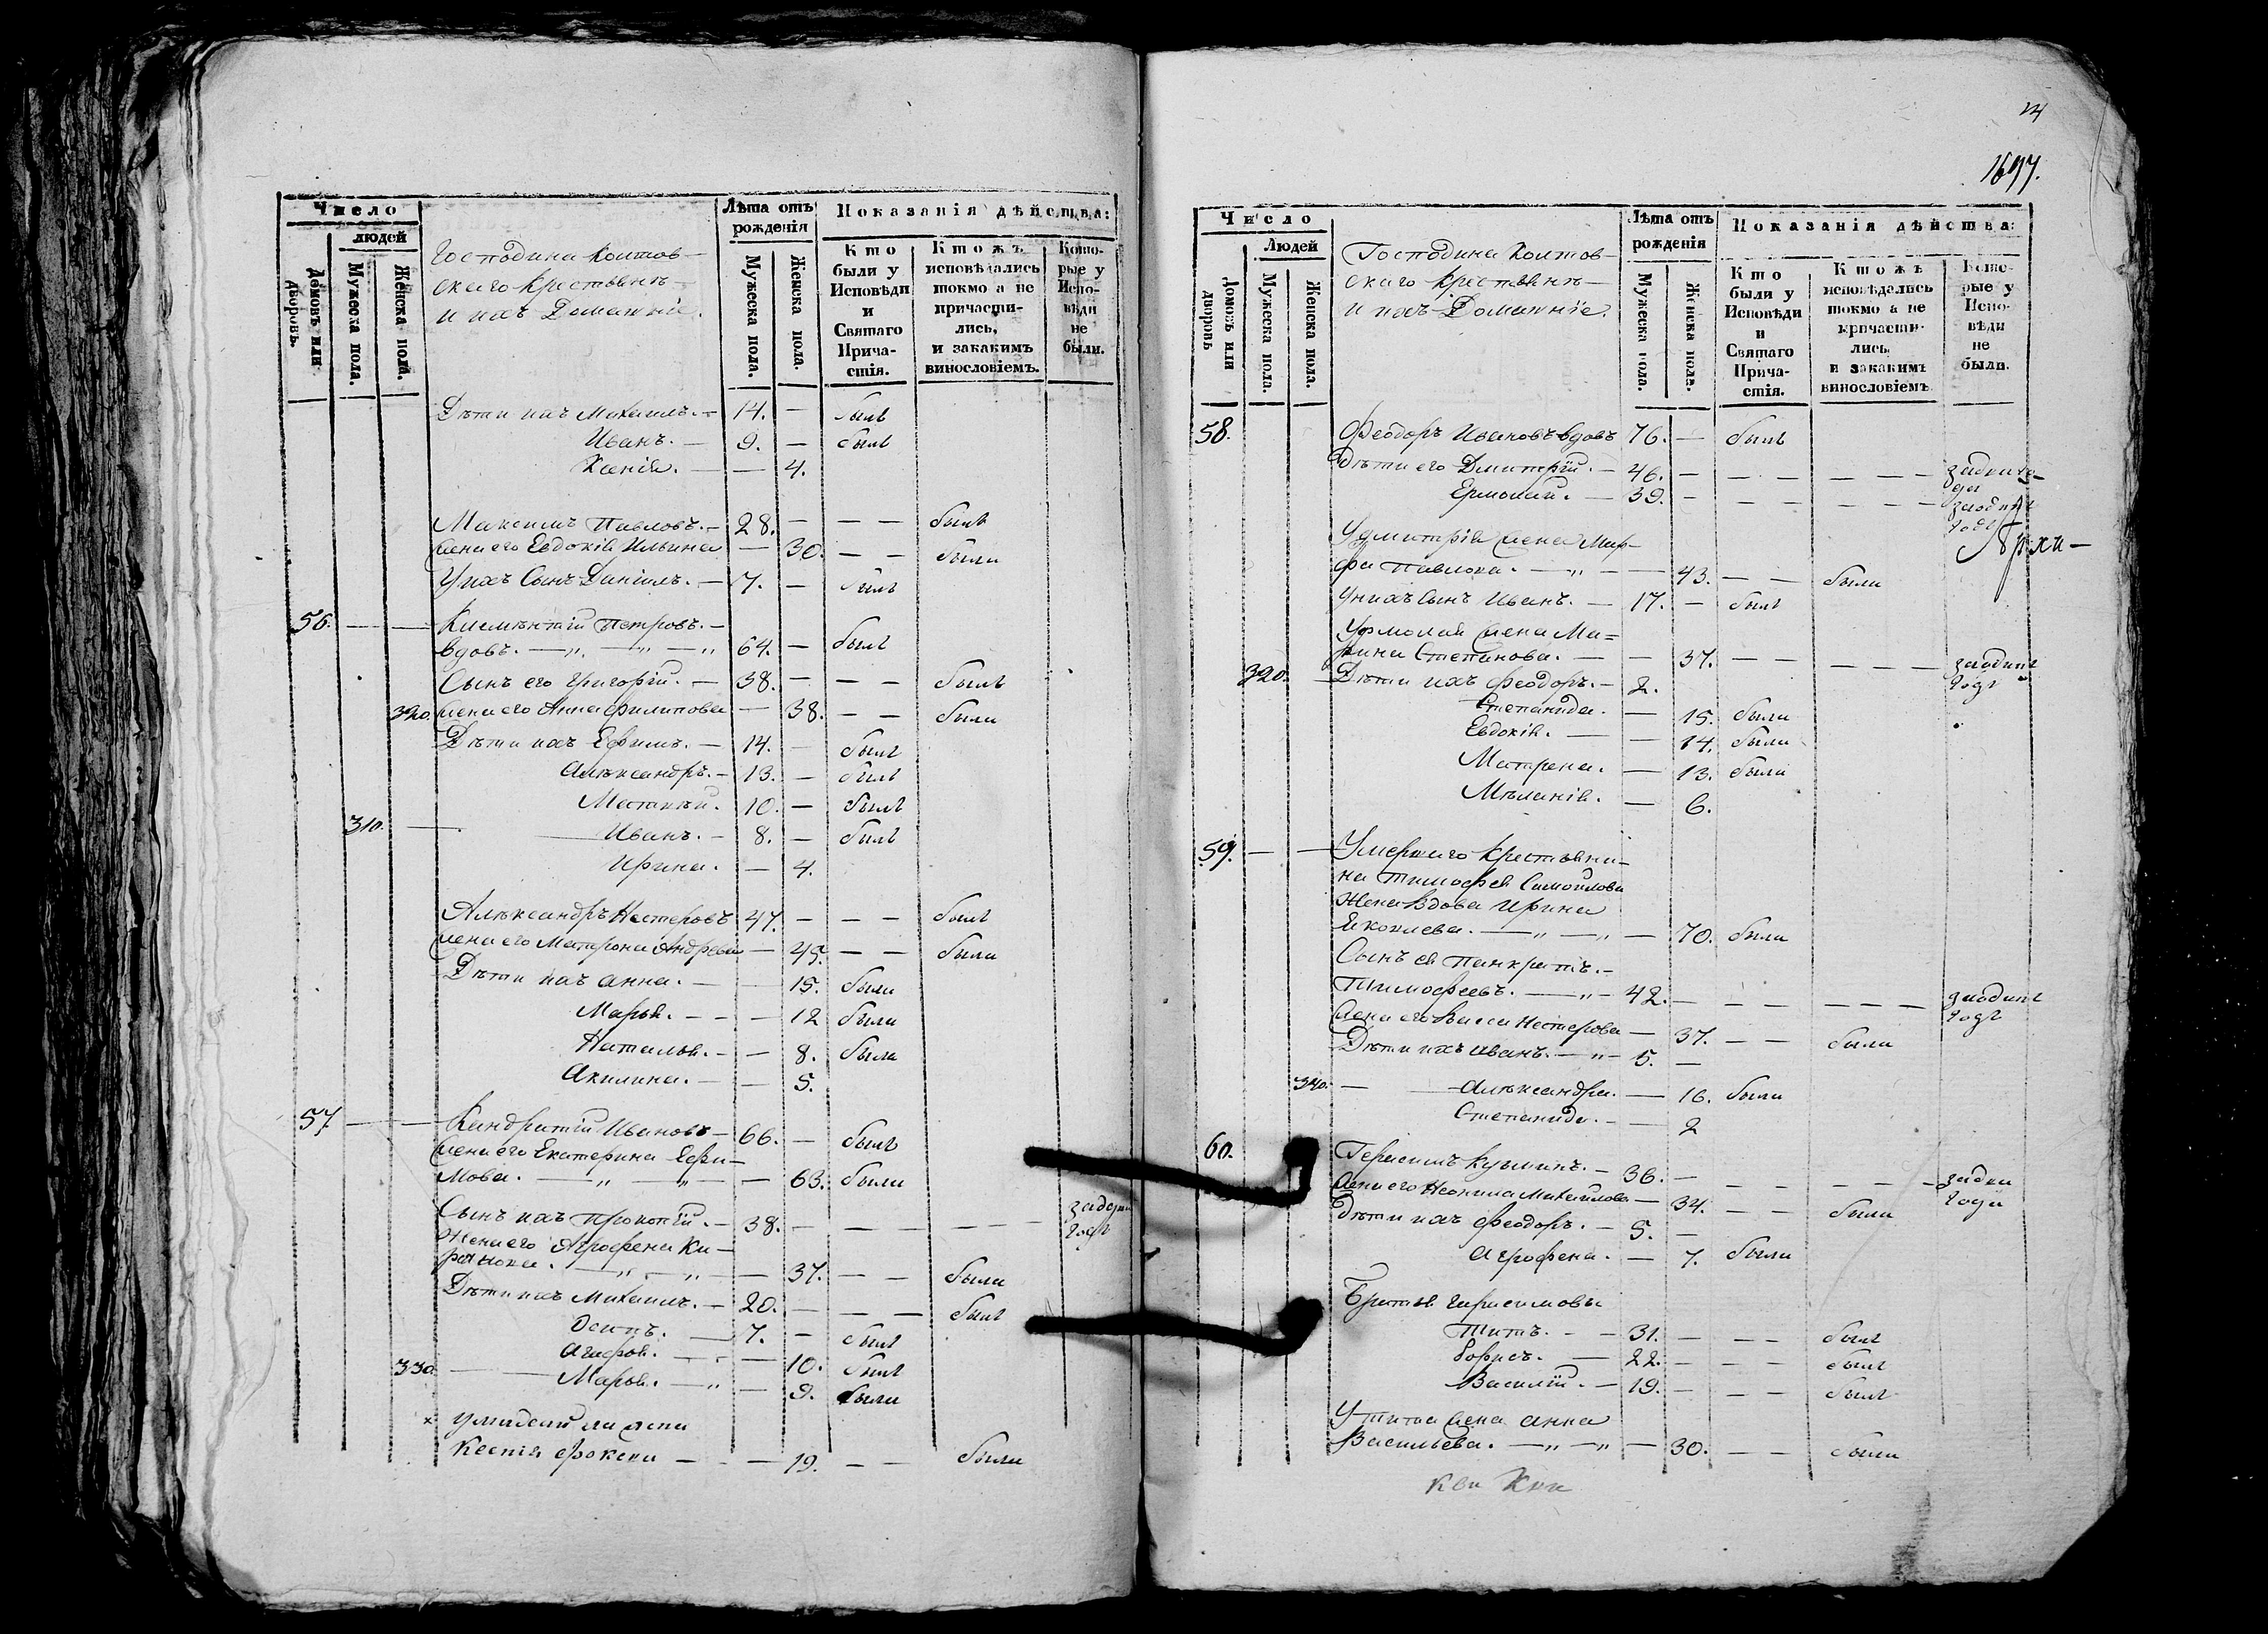 Число
людей
Домовъ или дворовъ.
Мужеска пола.
Женска пола.
Господина Коптов-
скаго крестьянъ
и ихъ Домашніе.
Лѣта отъ рожденія
Мужеска пола.
Женска пола.
Показанія дѣйства:
Кто были у Исповѣди и Святаго Прича-стія.
Ктожъ исповѣдались токмо а не причасти-лись, и закакимъ винословіемъ.
Кото-рые у Испо-вѣди не были.
Дѣти ихъ Михаилъ. — 14. — былъ
Иванъ. — 9. — былъ
Ксенія. — — 4.
Максимъ Павловъ. — 28. — — — былъ
жена его Евдокія Ильина — 30. — — была
У нихъ Сынъ Даніилъ. — 7. — былъ
56. — — Климентій Петровъ. —
вдовъ. — „ — „ — „ 64. — былъ
Сынъ его Григорій. — 38. — — — былъ
320. жена его Анна Филипова — 38. — — была
Дѣти ихъ Ефимъ. — 14. — былъ
Александръ. — 13. — былъ
10. — былъ
310. — — Иванъ. — 8. — былъ
Ирина. — — 4.
Александръ Нестеровъ 47. — — — былъ
жена его Матрона Андреева — 45. — — была
Дѣти ихъ Анна. — — 15. была
Марья. — — — 12 была
Наталья. — — 8. была
Акилина. — — 5.
57 — — Кандратій Ивановъ — 66. — былъ
жена его Екатерина Ефи-
мова. — „ — „ — — 63. была
Сынъ ихъ Прокопій. — 38. — — — — — — заодинъ годъ
Жена его Агрофена Ки-
— „ — „ — — 37. — — была
Дѣти ихъ Михаилъ. — 20. — — — былъ
Осипъ. — 7. — былъ
— 10. была
330. — — Марья. — „ — 9. была
× жена
Ксенія — — — 19. — — была
14
1697.
Число
Людей
Домовъ или дворовъ
Мужеска пола.
Женска пола.
Господина Коптов-
скаго крестьянъ —
и ихъ Домашніе.
Лѣта отъ рожденія
Мужеска пола.
Женска пола.
Показанія дѣйства:
Кто были у Исповѣди и Святаго Прича-стія.
Ктожъ исповѣдались токмо а не причасти-лись, и закакимъ винословіемъ
Кото-рые у Испо-вѣди не были.
58. Феодоръ Ивановъ вдовъ 76. — былъ
Дѣти его Дмитрій. — 46. — — — — — — задва года
Ермолай. — 39. — — — — — — заодинъ годъ
Архи-
У Дмитрія жена Мар-
фа Павлова. — „ — — 43. — — была
У нихъ Сынъ Иванъ. — 17. — былъ
У Ермолая жена Ма=
рина Степанова. — — 37. — — — — — заодинъ годъ
320. — Дѣти ихъ Феодоръ. — 2.
Степанида. — 15. была
Евдокія. — — 14. была
Матрена. — 13. была
Меланія. — 6.
59. — — Умершаго крестьяни-
на Тимофея Самойлова
Жена вдова Ирина
Яковлева. — „ — „ — 70. была
Сынъ ея Панкратъ. —
Тимофеевъ. — „ — 42. — — — — — — заодинъ годъ
жена его Васса Нестерова — 37. — — была
Дѣти ихъ Иванъ. — „ — 5. —
340. — — Александра. — 16. была
Степанида. — — 2
60. Герасимъ Кузминъ. — 36. — — — — — — задва года
жена его Неонила Михайлова — 34. — — была
Дѣти ихъ Феодоръ. — 5. —
Агрофена. — — 7. была
Братья Герасимовы
Титъ. — — 31. — — — былъ
Борисъ. — 22. — — — былъ
Василій. — 19. — — — былъ
У Тита жена Анна
Васильева. — „ — „ — 30. — — была